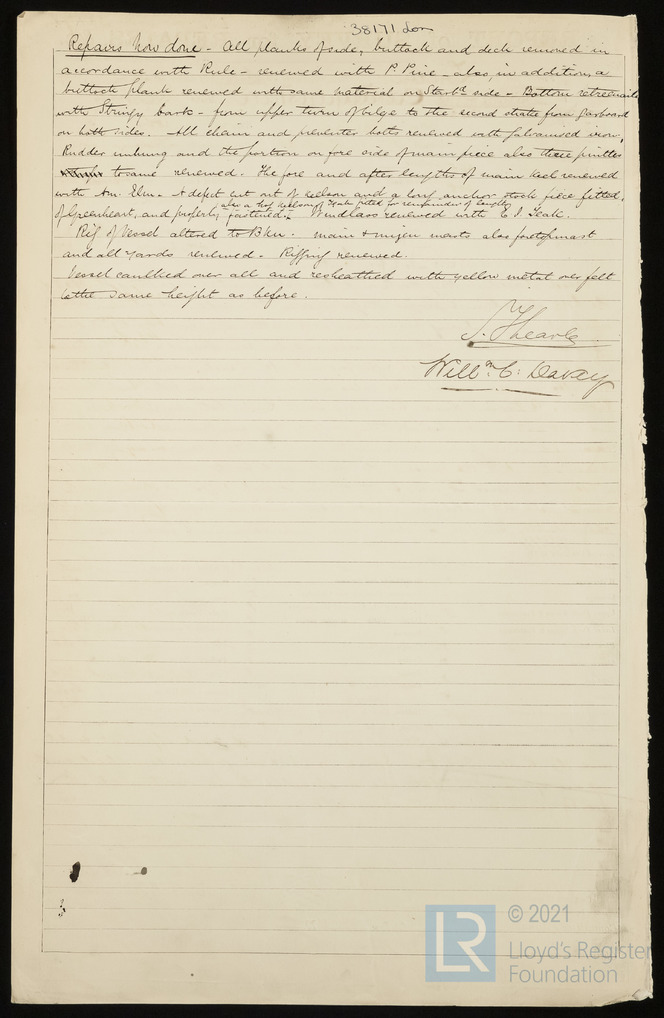 38171 Lon
Repairs Now done - All planks of side, buttock and deck removed in
accordance with Rule - renewed with P. Pine - also, in addition, a
buttock plank renewed with same material on Starbd side - Bottom retreenailed
with Stringy bark - from upper turn of bilge to the second strake from garboard
on both sides. All chain and preventer bolts renewed with galvanised iron,
Rudder unhung and the portion on fore side of main piece also three pintles
to same renewed. The fore and after lengths of main keel renewed
with Am. Elm. A defect cut out of keelson and a long anchor stock piece fitted,
also a hog keelson of Teak fitted for remainder of length
of Greenheart, and properly fastened. Windlass renewed with E I Teak.
Rig of Vessel altered to Bkn. main & mizen masts also foretopmast
and all yards renewed. Rigging renewed.
Vessel caulked over all and resheathed with yellow metal over felt
to the same height as before.
Willm C: Davey
© 2021
LR
Lloyd's Register
Foundation